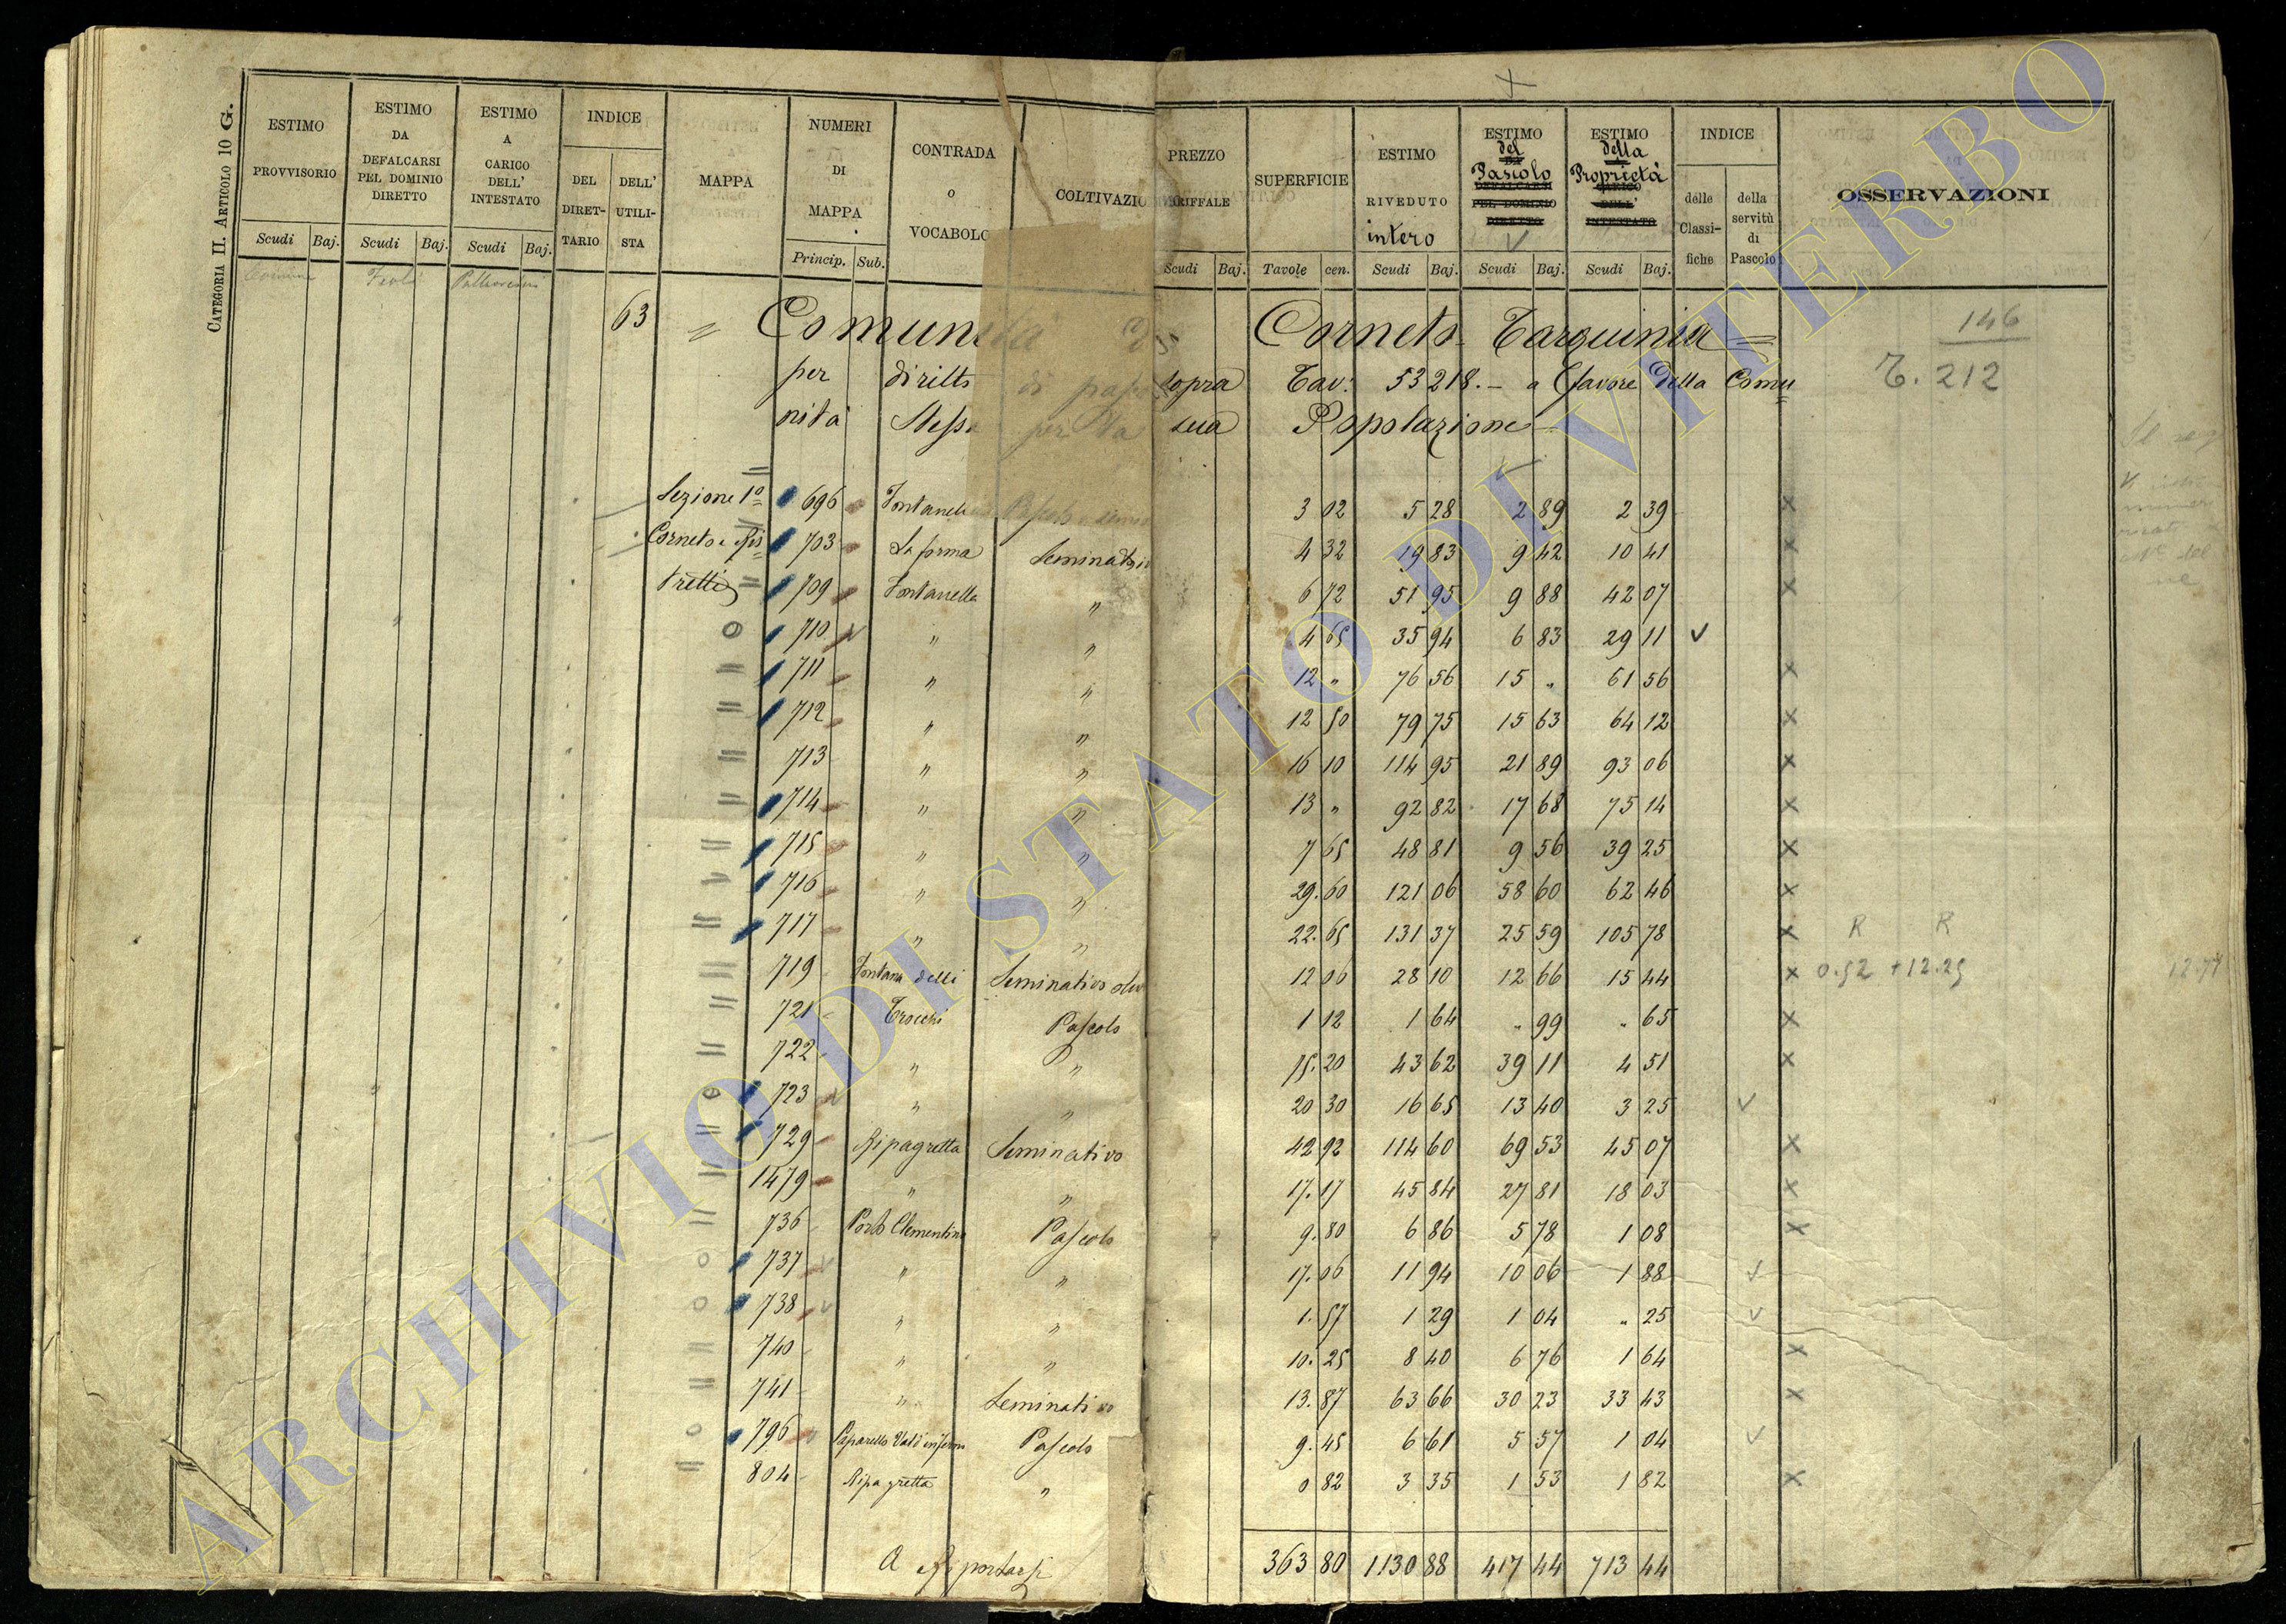 CATEGORIA II. ARTICOLO 10 G.
ESTIMO PROVVISORIO Scudi Baj.
ESTIMO DA DEFALCARSI PEL DOMINIO DIRETTO Scudi Baj.
ESTIMO A CARICO DELL' INTESTATO Scudi Baj.
INDICE DEL DIRETTARIO DELL' UTILISTA
MAPPA
NUMERI DI MAPPA Princip. Sub.
CONTRADA O VOCABOLO
COLTIVAZIO
PREZZO RIFFALE Scudi Baj.
SUPERFICIE Tavole cen.
ESTIMO RIVEDUTO intero Scudi Baj.
ESTIMO del Pascolo DEFALCARSI PEL DOMINIO DIRETTO Scudi Baj.
ESTIMO della Proprietà CARICO DELL' INTESTATO Scudi Baj.
INDICE delle Classifiche della servitù di Pascolo
OSSERVAZIONI
63 = Comunità Di Corneto Tarquinia = 146
per diritto di pascolo sopra Tav: 53218.– a favore della Comu T. 212
nità Stessa per la sua Popolazione
Sezione 1ª 696 Pascolo 3 02 5 28 2 89 2 39 x
Corneto e 703 La forma Seminativo 4 32 19 83 9 42 10 41 x
709 Fontanella " 6 72 51 95 9 88 42 07 x
710 " " 4 65 35 94 6 83 29 11 v
711 " " 12 " 76 56 15 " 61 56 x
712 " " 12 50 79 75 15 63 64 12 x
713 " " 16 10 114 95 21 89 93 06 x
714 " " 13 " 92 82 17 68 75 14 x
715 " " 7 65 48 81 9 56 39 25 x
716 " " 29.60 121 06 58 60 62 46 x
717 " " 22.65 131 37 25 59 105 78 x R R
719 Fontana delli Seminativo oliv 12 06 28 10 12 66 15 44 x 0.52 + 12.25
721 Trocchi Pascolo 1 12 1 64 " 99 " 65 x
722 " " 15.20 43 62 39 11 4 51 x
723 " " 20 30 16 65 13 40 3 25 v
729 Ripagretta Seminativo 42 92 114 60 69 53 45 07 x
1479 " " 17.17 45 84 27 81 18 03 x
736 Porto Clementino Pascolo 9.80 6 86 5 78 1 08 x
737 " " 17.06 11 94 10 06 1 88 v
738 " " 1.57 1 29 1 04 " 25 v
740 " " 10.25 8 40 6 76 1 64 x
741 " Seminativo 13.87 63 66 30 23 33 43 x
796 Pascolo 9.45 6 61 5 57 1 04 v
804 Ripagretta " 0 82 3 35 1 53 1 82 x
A Riportarsi 363 80 1130 88 417 44 713 44
ARCHIVIO DI STATO DI VITERBO